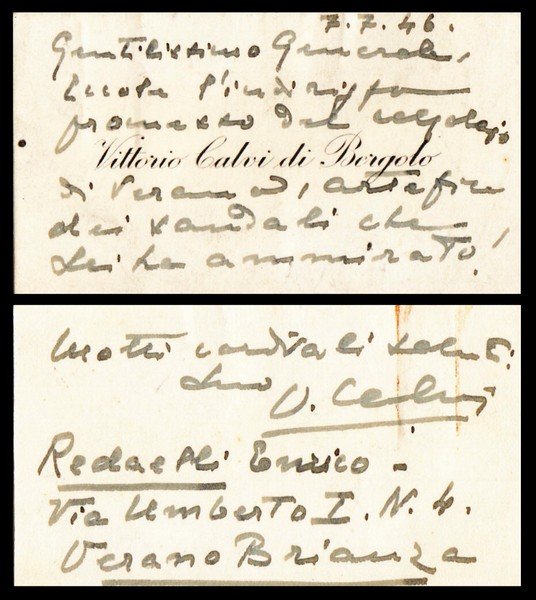 7.7.46.
Gentilissimo Generale,
Eccole l'indirizzo
promesso del calzolajo
Vittorio Calvi di Bergolo
di Verano, artefice
dei sandali che
Lei ha ammirato!
Molti cordiali saluti
Suo
V. Calvi
Redaelli Enrico -
Via Umberto I. N. 4.
Verano Brianza